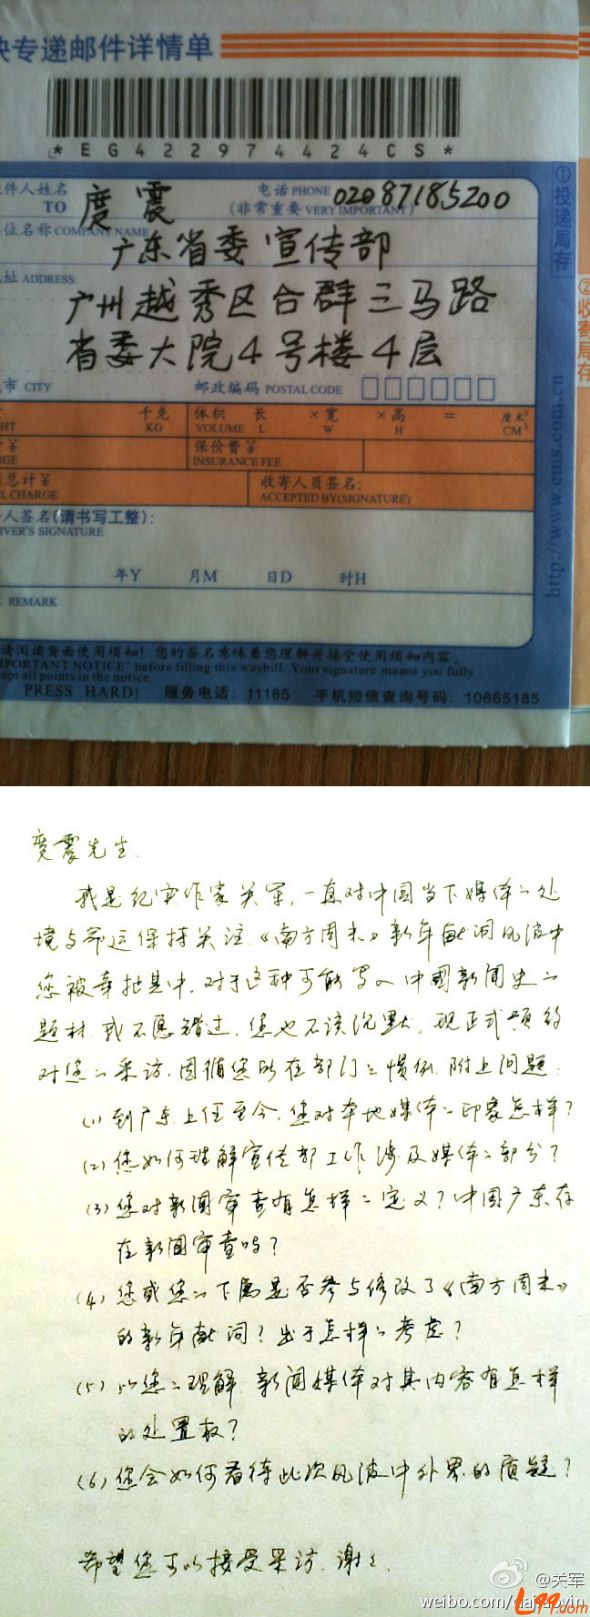 快专递邮件详情单
*EG422974424CS*
件人姓名
TO
度震
电话 PHONE
02087185200
(非常重要 VERY IMPORTANT)
位名称 COMPANY NAME
广东省委宣传部
址 ADDRESS:
广州越秀区合群三马路
省委大院4号楼4层
市 CITY
邮政编码 POSTAL CODE
千克
KG
体积 长 ×宽 ×高 = 厘米³
VOLUME L W H CM³
保价费¥
INSURANCE FEE
总计¥
CHARGE
收寄人员签名:
ACCEPTED BY(SIGNATURE)
人签名(请书写工整):
VER'S SIGNATURE
年Y 月M 日D 时H
REMARK
请阅读背面使用须知! 您的签名意味着您理解并接受使用须知内容。
IMPORTANT NOTICE" before filling this waybill. Your signature means you fully
ept all points in the notice.
PRESS HARD! 服务电话: 11185 手机短信查询号码: 10665185
①投递局存
http://www.ems.com.cn
②收寄局存
度震先生.
我是纪实作家关军,一直对中国当下媒体的处
境与命运保持关注.《南方周末》新年献词风波中
您被牵扯其中.对于这种可能写入中國新闻史的
题材,我不愿错过,您也不该沉默.现正式预约
对您的采访.因循您所在部门的惯例,附上问题:
(1)到广东上任至今,您对本地媒体的印象怎样?
(2)您如何理解宣传部工作涉及媒体的部分?
(3)您对新闻审查有怎样的定义?中国广东存
在新闻审查吗?
(4)您或您的下属是否参与修改了《南方周末》
的新年献词?出于怎样的考虑?
(5)以您的理解,新闻媒体对其内容有怎样
的处置权?
(6)您会如何看待此次风波中外界的质疑?
希望您可以接受采访.谢谢.
@关军
weibo.com/daj
L99.com